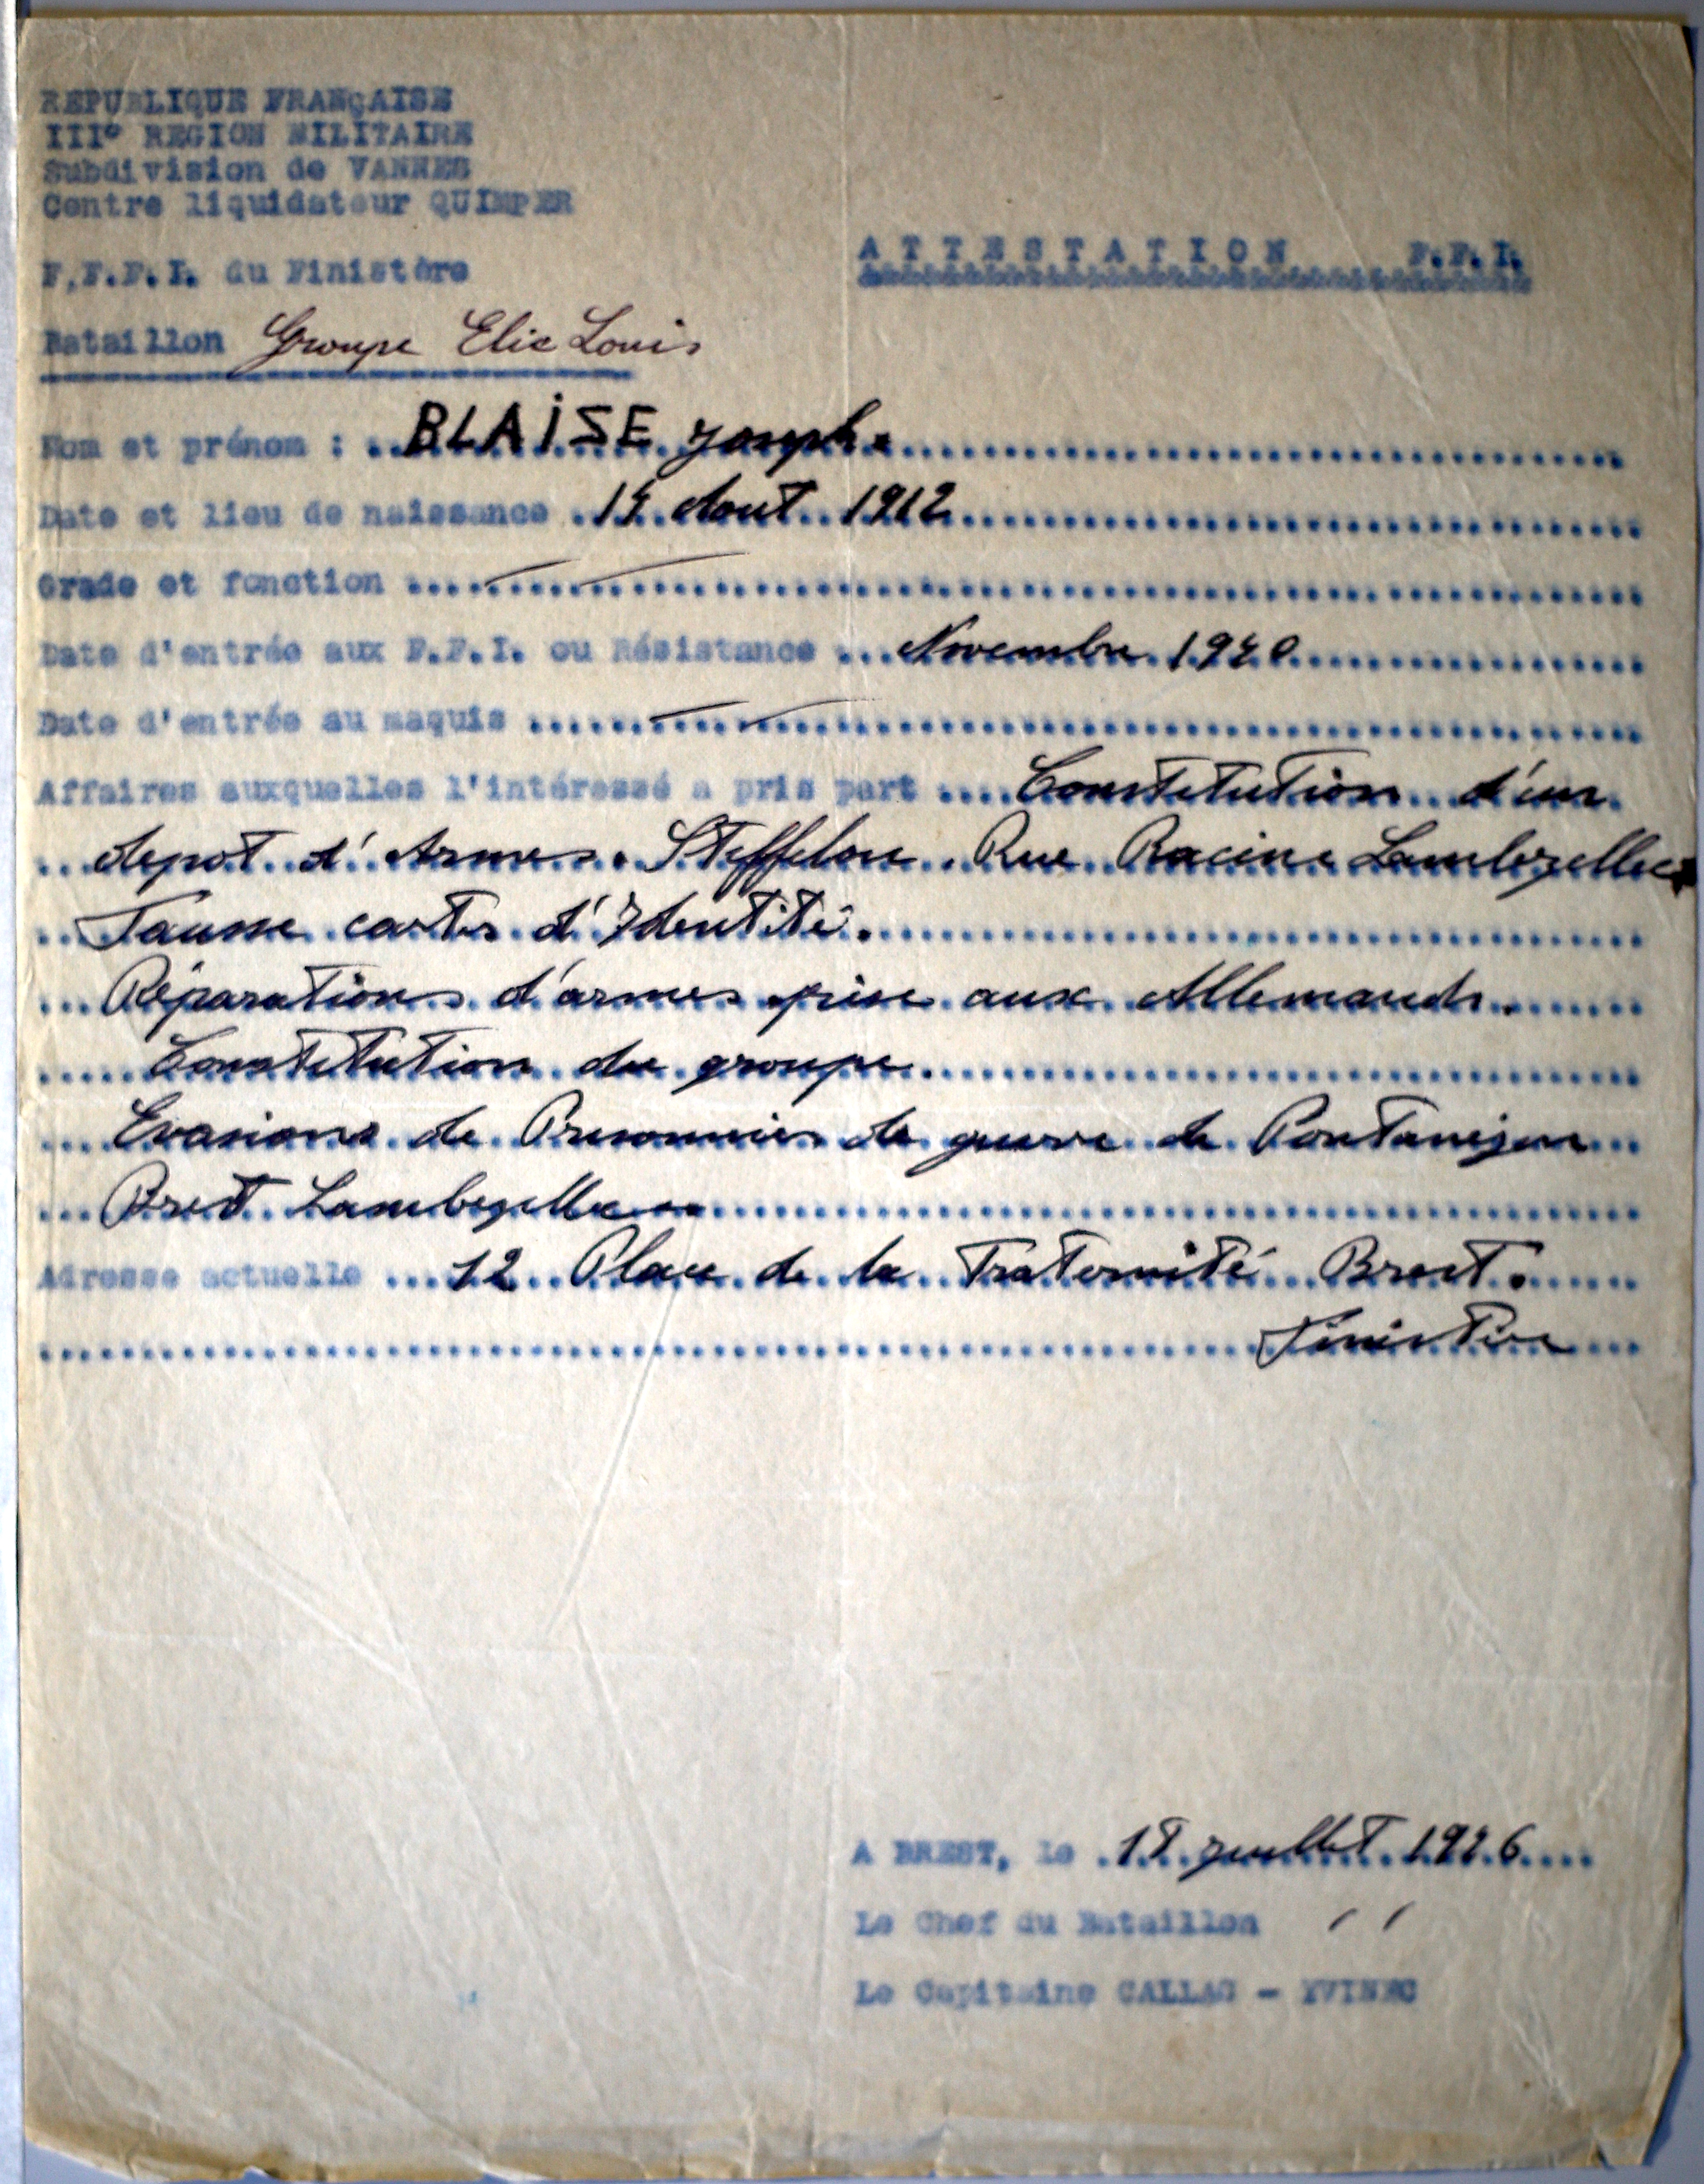 REPUBLIQUE FRANÇAISE
III° REGION MILITAIRE
Subdivision de VANNES
Centre liquidateur QUIMPER
F,F.F.I. du Finistère
ATTESTATION F.F.I.
Bataillon Groupe Elie Louis
Nom et prénom : BLAISE Joseph.
Date et lieu de naissance 14 Aout 1912
Grade et fonction
Date d'entrée aux F.F.I. ou Résistance Novembre 1940
Date d'entrée au maquis
Affaires auxquelles l'intéressé a pris part Constitution d'un
depot d'Armes. Steffelou Rue Racine Lambezellec
Fausse cartes d'Identité.
Réparations d'armes prise aux Allemands.
Constitution du groupe.
Evasions de Prisonniers de guerre de Pontanezen
Brest Lambezellec
Adresse actuelle 12 Place de la Fraternité Brest.
Finistère
A BREST, le juillet 1946
Le Chef du Bataillon
Le Capitaine CALLAG - YVINEC